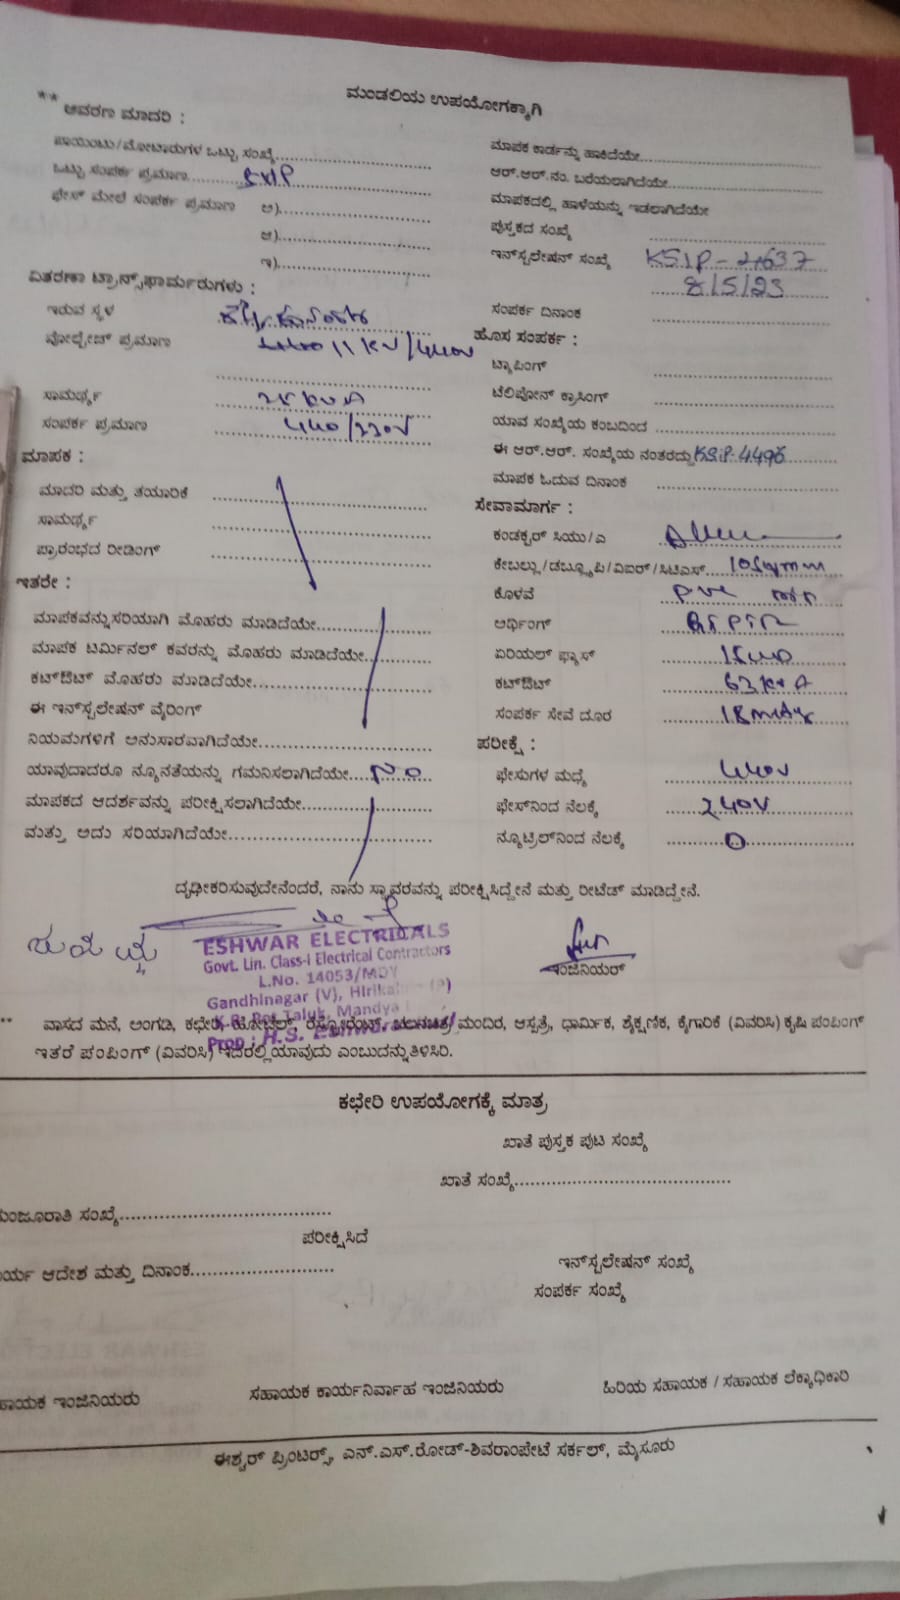 ಮಂಡಲಿಯ ಉಪಯೋಗಕ್ಕಾಗಿ
** ಆವರಣ ಮಾದರಿ :
ಪಾಯಿಂಟು/ಮೋಟಾರುಗಳ ಒಟ್ಟು ಸಂಖ್ಯೆ
ಒಟ್ಟು ಸಂಪರ್ಕ ಪ್ರಮಾಣ
ಫೇಸ್ ಮೇಲೆ ಸಂಪರ್ಕ ಪ್ರಮಾಣ ಅ)
ಆ)
ಇ)
ವಿತರಣಾ ಟ್ರಾನ್ಸ್‌ಫಾರ್ಮರುಗಳು :
ಇರುವ ಸ್ಥಳ
ವೋಲ್ಟೇಜ್ ಪ್ರಮಾಣ 11 KV/440V
ಸಾಮರ್ಥ್ಯ
ಸಂಪರ್ಕ ಪ್ರಮಾಣ 440/230V
ಮಾಪಕ :
ಮಾದರಿ ಮತ್ತು ತಯಾರಿಕೆ
ಸಾಮರ್ಥ್ಯ
ಪ್ರಾರಂಭದ ರೀಡಿಂಗ್
ಇತರೇ :
ಮಾಪಕವನ್ನು ಸರಿಯಾಗಿ ಮೊಹರು ಮಾಡಿದೆಯೇ
ಮಾಪಕ ಟರ್ಮಿನಲ್ ಕವರನ್ನು ಮೊಹರು ಮಾಡಿದೆಯೇ
ಕಟ್‌ಔಟ್ ಮೊಹರು ಮಾಡಿದೆಯೇ
ಈ ಇನ್‌ಸ್ಟಲೇಷನ್ ವೈರಿಂಗ್
ನಿಯಮಗಳಿಗೆ ಅನುಸಾರವಾಗಿದೆಯೇ
ಯಾವುದಾದರೂ ನ್ಯೂನತೆಯನ್ನು ಗಮನಿಸಲಾಗಿದೆಯೇ NO
ಮಾಪಕದ ಆದರ್ಶವನ್ನು ಪರೀಕ್ಷಿಸಲಾಗಿದೆಯೇ
ಮತ್ತು ಅದು ಸರಿಯಾಗಿದೆಯೇ
ಮಾಪಕ ಕಾರ್ಡನ್ನು ಹಾಕಿದೆಯೇ
ಆರ್.ಆರ್.ನಂ. ಬರೆಯಲಾಗಿದೆಯೇ
ಮಾಪಕದಲ್ಲಿ ಹಾಳೆಯನ್ನು ಇಡಲಾಗಿದೆಯೇ
ಪುಸ್ತಕದ ಸಂಖ್ಯೆ
ಇನ್‌ಸ್ಟಲೇಷನ್ ಸಂಖ್ಯೆ
8/5/23
ಸಂಪರ್ಕ ದಿನಾಂಕ
ಹೊಸ ಸಂಪರ್ಕ :
ಟ್ಯಾಪಿಂಗ್
ಟೆಲಿಫೋನ್ ಕ್ರಾಸಿಂಗ್
ಯಾವ ಸಂಖ್ಯೆಯ ಕಂಬದಿಂದ
ಈ ಆರ್.ಆರ್. ಸಂಖ್ಯೆಯ ನಂತರದ್ದು KSIP-4496
ಮಾಪಕ ಓದುವ ದಿನಾಂಕ
ಸೇವಾಮಾರ್ಗ :
ಕಂಡಕ್ಟರ್ ಸಿಯು/ಎ
ಕೇಬಲ್ಲು/ಡಬ್ಲ್ಯೂಪಿ/ವಿಐಆರ್/ಸಿಟಿಎಸ್ 10Sqmm
ಕೊಳವೆ PVC
ಅರ್ಥಿಂಗ್
ಏರಿಯಲ್ ಫ್ಯೂಸ್
ಕಟ್‌ಔಟ್
ಸಂಪರ್ಕ ಸೇವೆ ದೂರ
ಪರೀಕ್ಷೆ :
ಫೇಸುಗಳ ಮಧ್ಯೆ 440V
ಫೇಸ್‌ನಿಂದ ನೆಲಕ್ಕೆ 240V
ನ್ಯೂಟ್ರಿಲ್‌ನಿಂದ ನೆಲಕ್ಕೆ 0
ದೃಢೀಕರಿಸುವುದೇನೆಂದರೆ, ನಾನು ಸ್ಥಾವರವನ್ನು ಪರೀಕ್ಷಿಸಿದ್ದೇನೆ ಮತ್ತು ರೀಟೆಡ್ ಮಾಡಿದ್ದೇನೆ.
ESHWAR ELECTRICALS
Govt. Lin. Class-I Electrical Contractors
L.No. 14053/MDY
Gandhinagar (V),
Taluk, Mandya
Prop : H.S. Eshwar
ಇಂಜಿನಿಯರ್
** ವಾಸದ ಮನೆ, ಅಂಗಡಿ, ಕಛೇರಿ, ಹೋಟೆಲ್, ರೆಸ್ಟೋರೆಂಟ್, ಚಲನಚಿತ್ರ ಮಂದಿರ, ಆಸ್ಪತ್ರೆ, ಧಾರ್ಮಿಕ, ಶೈಕ್ಷಣಿಕ, ಕೈಗಾರಿಕೆ (ವಿವರಿಸಿ) ಕೃಷಿ ಪಂಪಿಂಗ್
ಇತರೆ ಪಂಪಿಂಗ್ (ವಿವರಿಸಿ) ಇದರಲ್ಲಿ ಯಾವುದು ಎಂಬುದನ್ನು ತಿಳಿಸಿರಿ.
ಕಛೇರಿ ಉಪಯೋಗಕ್ಕೆ ಮಾತ್ರ
ಖಾತೆ ಪುಸ್ತಕ ಪುಟ ಸಂಖ್ಯೆ
ಖಾತೆ ಸಂಖ್ಯೆ
ಮಂಜೂರಾತಿ ಸಂಖ್ಯೆ
ಪರೀಕ್ಷಿಸಿದೆ
ಆದೇಶ ಮತ್ತು ದಿನಾಂಕ
ಇನ್‌ಸ್ಟಲೇಷನ್ ಸಂಖ್ಯೆ
ಸಂಪರ್ಕ ಸಂಖ್ಯೆ
ಇಂಜಿನಿಯರು
ಸಹಾಯಕ ಕಾರ್ಯನಿರ್ವಾಹ ಇಂಜಿನಿಯರು
ಹಿರಿಯ ಸಹಾಯಕ / ಸಹಾಯಕ ಲೆಕ್ಕಾಧಿಕಾರಿ
ಈಶ್ವರ್ ಪ್ರಿಂಟರ್ಸ್, ಎನ್.ಎಸ್.ರೋಡ್-ಶಿವರಾಂಪೇಟೆ ಸರ್ಕಲ್, ಮೈಸೂರು